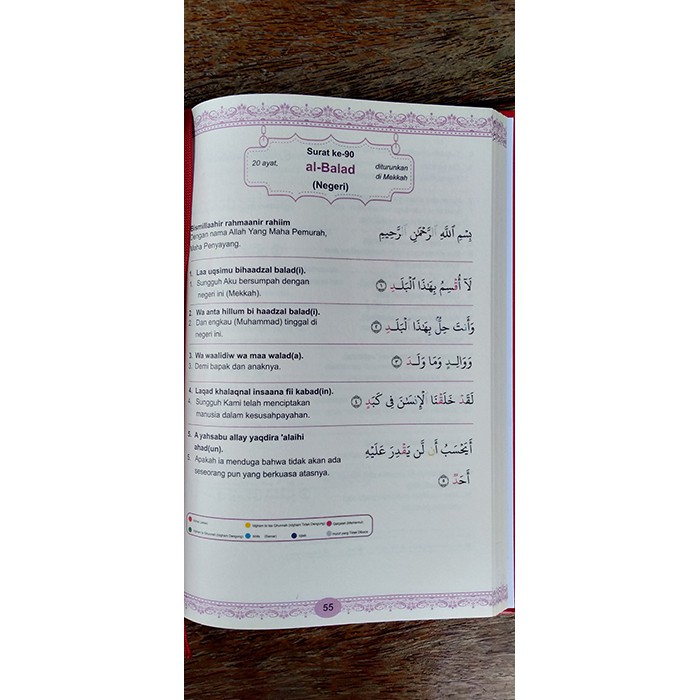 Surat ke-90
20 ayat,
al-Balad
diturunkan
di Mekkah
(Negeri)
Bismillaahir rahmaanir rahiim
Dengan nama Allah Yang Maha Pemurah,
Maha Penyayang.
بِسْمِ ٱللَّهِ ٱلرَّحْمَٰنِ ٱلرَّحِيمِ
1. Laa uqsimu bihaadzal balad(i).
1. Sungguh Aku bersumpah dengan
negeri ini (Mekkah).
لَآ أُقْسِمُ بِهَٰذَا ٱلْبَلَدِ ١
2. Wa anta hillum bi haadzal balad(i).
2. Dan engkau (Muhammad) tinggal di
negeri ini.
وَأَنتَ حِلٌّۢ بِهَٰذَا ٱلْبَلَدِ ٢
3. Wa waalidiw wa maa walad(a).
3. Demi bapak dan anaknya.
وَوَالِدٍ وَمَا وَلَدَ ٣
4. Laqad khalaqnal insaana fii kabad(in).
4. Sungguh Kami telah menciptakan
manusia dalam kesusahpayahan.
لَقَدْ خَلَقْنَا ٱلْإِنسَٰنَ فِى كَبَدٍ ٤
5. A yahsabu allay yaqdira 'alaihi
ahad(un).
5. Apakah ia menduga bahwa tidak akan ada
seseorang pun yang berkuasa atasnya.
أَيَحْسَبُ أَن لَّن يَقْدِرَ عَلَيْهِ
أَحَدٌ ٥
55